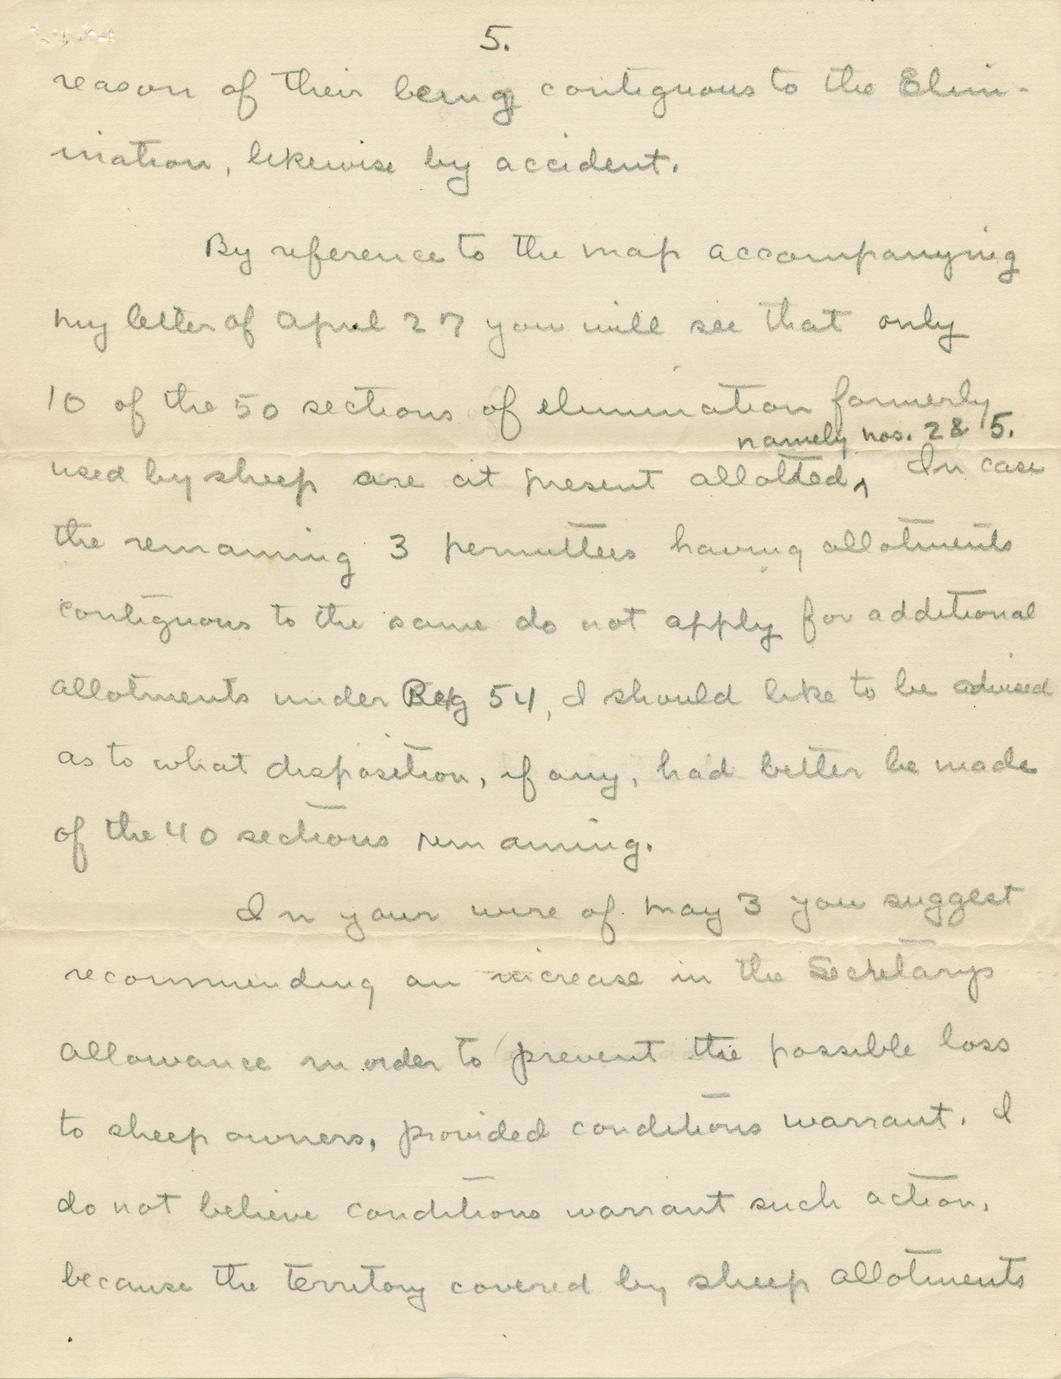 5.
reason of their being contiguous to the Elim-
ination, likewise by accident.
By reference to the map accompanying
my letter of April 27 you will see that only
10 of the 50 sections of elimination formerly
namely nos. 2 & 5.
used by sheep are at present allotted‸ In case
the remaining 3 permittees having allotments
contiguous to the same do not apply for additional
allotments under Reg 54, I should like to be advised
as to what disposition, if any, had better be made
of the 40 sections remaining.
In your wire of May 3 you suggest
recommending an increase in the Secretarys
allowance in order to prevent the possible loss
to sheep owners, provided conditions warrant. I
do not believe conditions warrant such action,
because the territory covered by sheep allotments